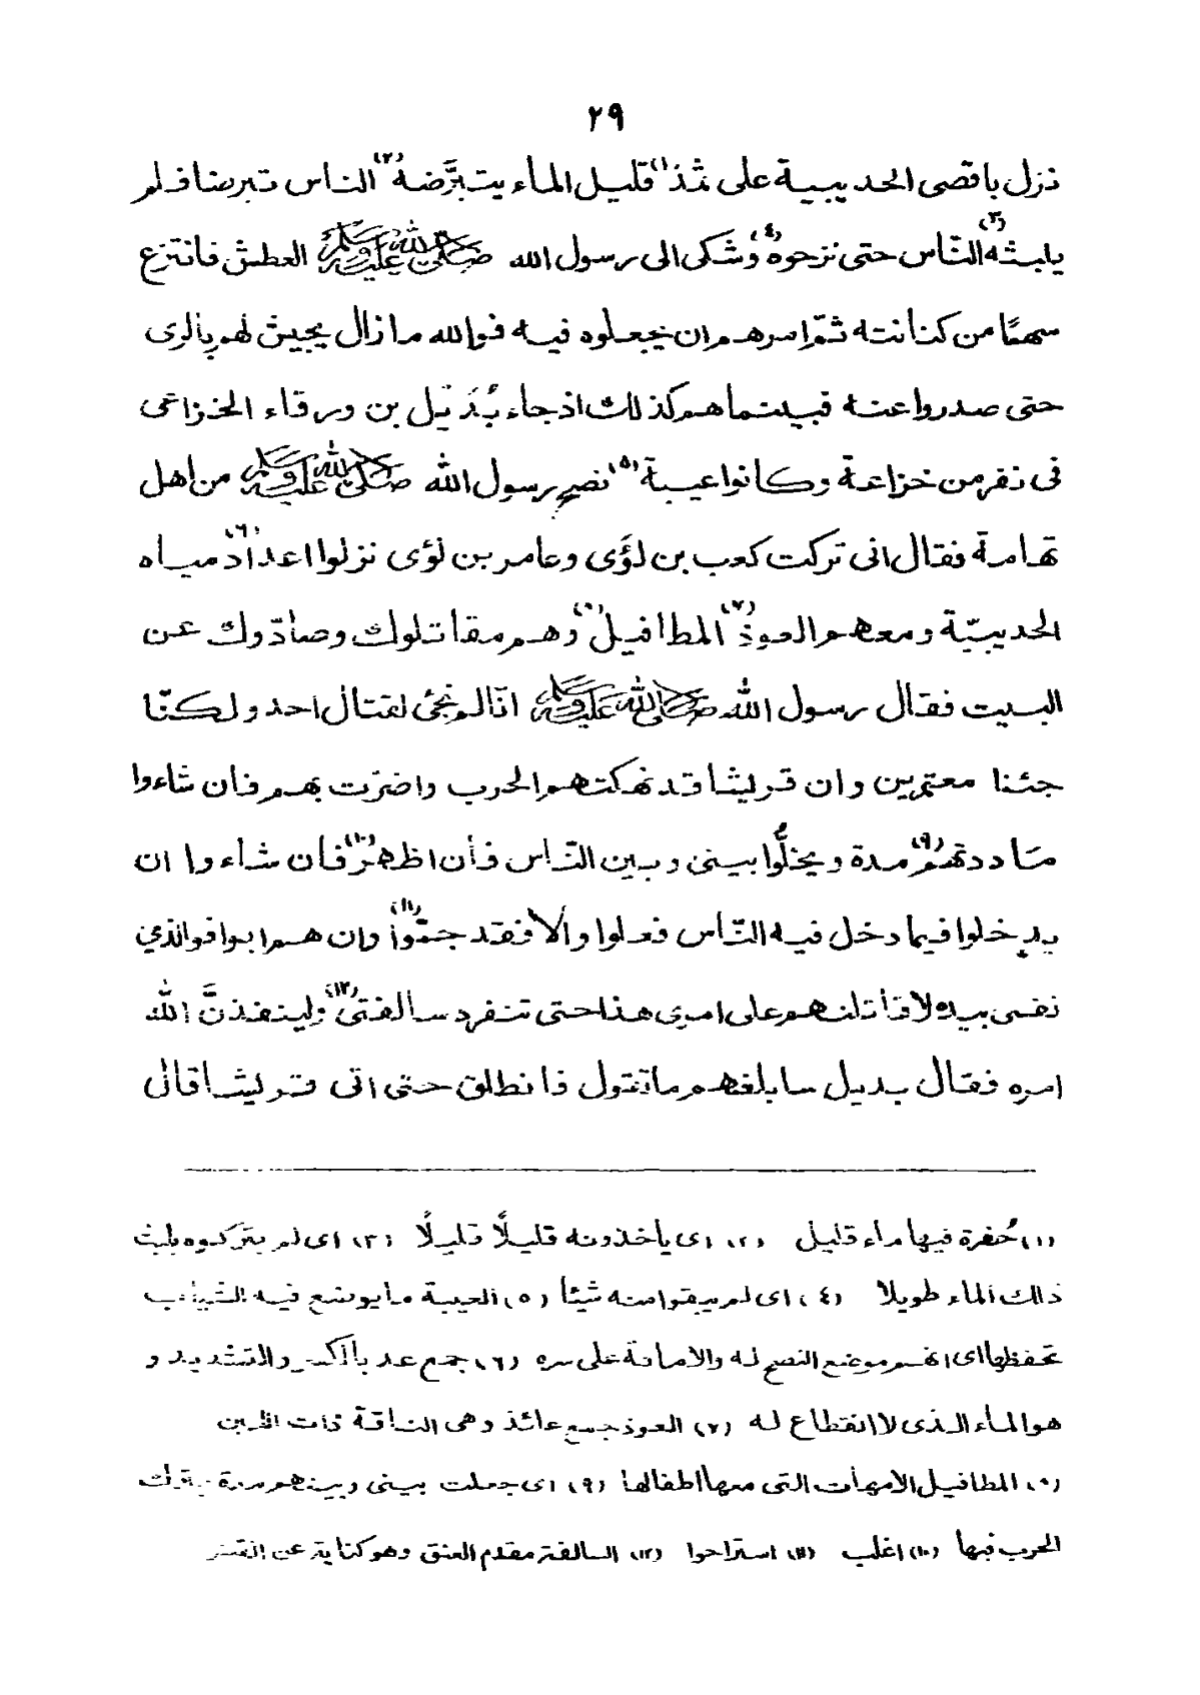 ٢٩
نزل باقصى الحديبية على ثمد(١) قليل الماء يتبرَّضه(٢) الناس تبرضا فلم
يلبثه(٣) النّاس حتى نزحوه(٤) وشكى الى رسول الله صلى الله عليه وسلم العطش فانتزع
سهمًا من كنانته ثمّ امرهم ان يجعلوه فيه فوالله ما زال يجيش لهم بالرى
حتى صدروا عنه فبينما هم كذلك اذ جاء بُدَيل بن ورقاء الخزاعى
فى نفر من خزاعة وكانوا عيبة(٥) نصح رسول الله صلى الله عليه وسلم من اهل
تهامة فقال انى تركت كعب بن لؤَى وعامر بن لؤى نزلوا اعداد(٦) مياه
الحديبيّة ومعهم العوذ(٧) المطافيل(٨) وهم مقاتلوك وصادّوك عن
البيت فقال رسول الله صلى الله عليه وسلم انّا لم نجئ لقتال احد ولكنّا
جئنا معتمرين وان قريشا قد نهكتهم الحرب واضرّت بهم فان شاءوا
مَاددتهم(٩) مدة ويخلُّوا بينى وبين النّاس فأن اظهر(١٠) فأن شاءوا ان
يدخلوا فيما دخل فيه النّاس فعلوا وألا فقد جمّوا(١١) وإن هم ابوا فوالذي
نفسى بيده لاقأتلنهم على امرى هذا حتى تنفرد سالفتى(١٢) ولينفذنَّ الله
امره فقال بديل سابلغهم ما تقول فانطلق حتى اتى قريشا قال
(١) حُفرة فيها ماء قليل (٢) اى يأخذونه قليلًا قليلًا (٣) اى لم يتركوه يلبث
ذالك الماء طويلا (٤) اى لم يبقوا منه شيئا (٥) العيبة ما يوضع فيه الثياب
تحفظها اى انهم موضع النصح له والامانة على سره (٦) جمع عد بالكسر والتشديد و
هو الماء الذى لا انقطاع له (٧) العوذ جمع عائذ وهى الناقة ذات اللبن
(٨) المطافيل الامهات التى معها اطفالها (٩) اى جعلت بينى وبينهم مدة يترك
الحرب فيها (١٠) اغلب (١١) استراحوا (١٢) السالفة مقدم العنق وهو كناية عن القتل